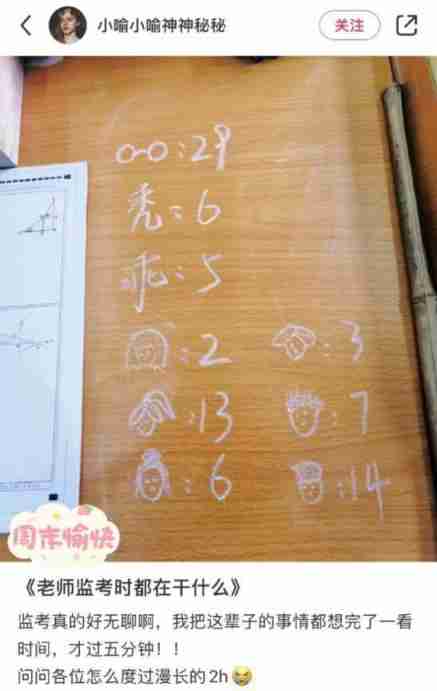 小喻小喻神神秘秘
关注
o-o:29
秃:6
乖:5
:2 :3
:13 :7
:6 :14
周末愉快
《老师监考时都在干什么》
监考真的好无聊啊，我把这辈子的事情都想完了一看
时间，才过五分钟！！
问问各位怎么度过漫长的2h😂